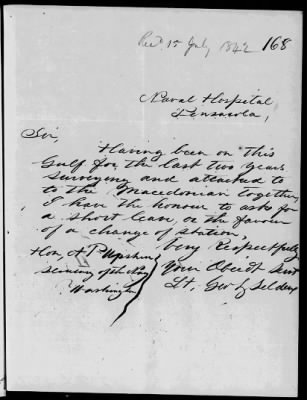 Rec'd 15 July 1842 168
Naval Hospital,
Pensacola,
Sir,
Having been on this
Gulf for the last two years
surveying and attached to
to the Macedonian together,
I have the honour to ask for
a short leave, or the favour
of a change of station,
Very Respectfully
Hon, A P Upshur
Your Obedt Servt
Secretary of the Navy
Lt, Geo
Washington